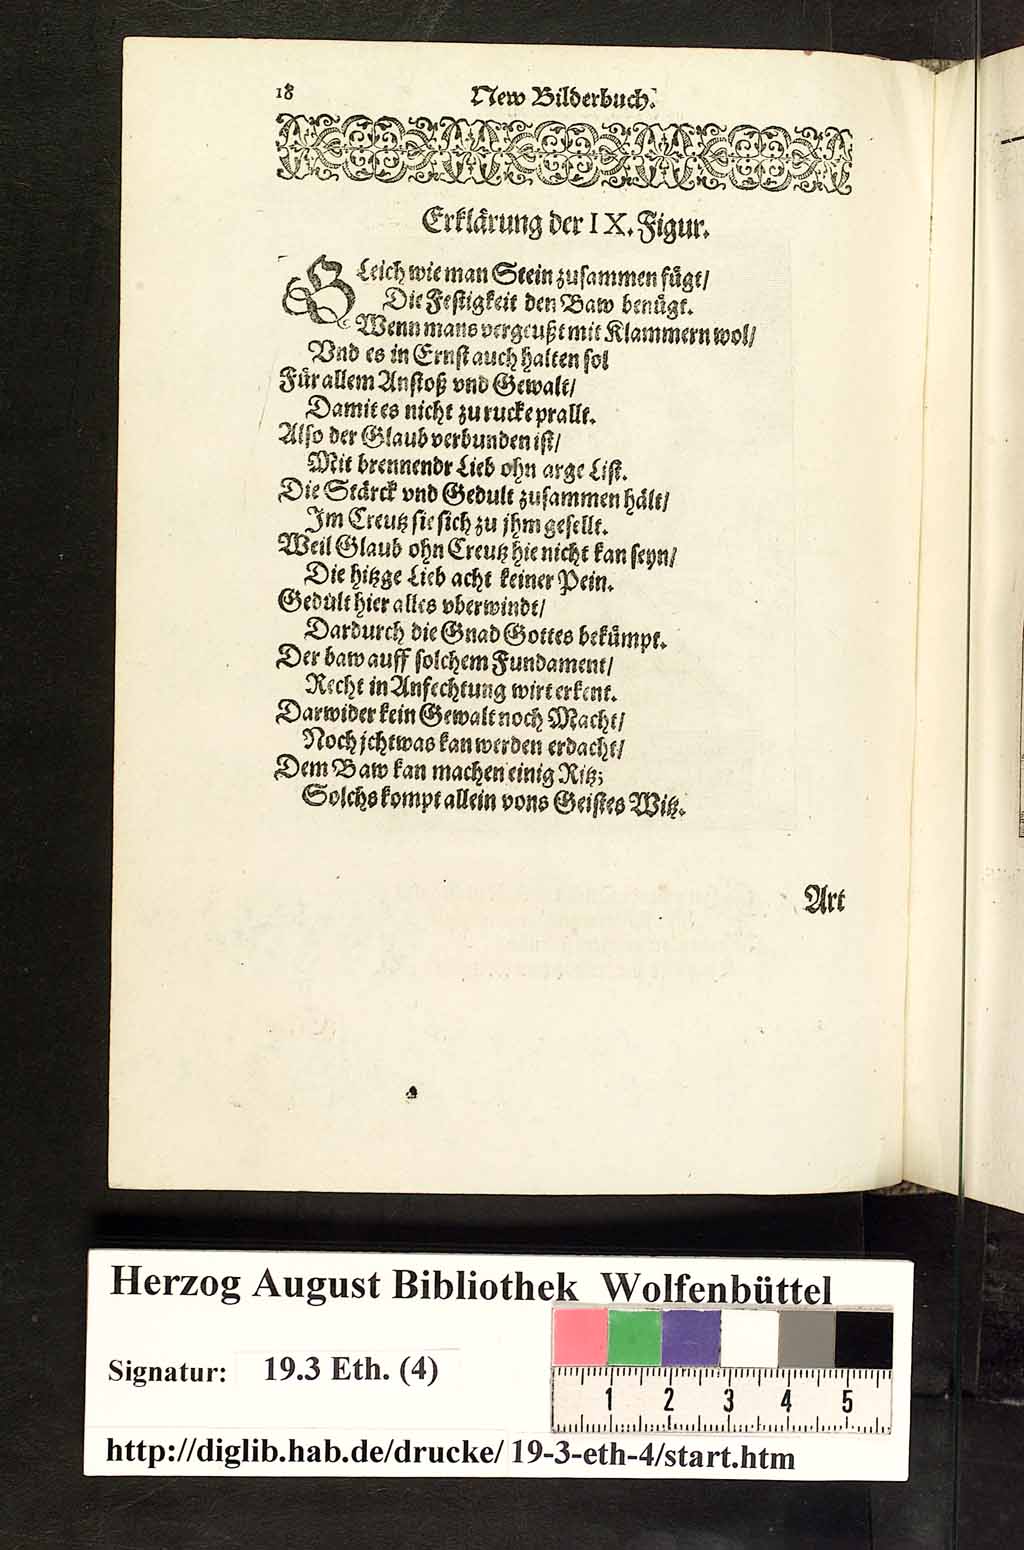 18 New Bilderbuch.
Erklärung der IX. Figur.
GLeich wie man Stein zusammen fügt/
Die Festigkeit den Baw benügt.
Wenn mans vergeußt mit Klammern wol/
Vnd es in Ernst auch halten sol
Für allem Anstoß vnd Gewalt/
Damit es nicht zu rucke prallt.
Also der Glaub verbunden ist/
Mit brennendr Lieb ohn arge List.
Die Stärck vnd Gedult zusammen hält/
Im Creutz sie sich zu jhm gesellt.
Weil Glaub ohn Creutz hie nicht kan seyn/
Die hitzge Lieb acht keiner Pein.
Gedult hier alles vberwindt/
Dardurch die Gnad Gottes bekümpt.
Der baw auff solchem Fundament/
Recht in Anfechtung wirt erkent.
Darwider kein Gewalt noch Macht/
Noch jchtwas kan werden erdacht/
Dem Baw kan machen einig Ritz;
Solchs kompt allein vons Geistes Witz.
Art
Herzog August Bibliothek Wolfenbüttel
Signatur: 19.3 Eth. (4)
1 2 3 4 5
http://diglib.hab.de/drucke/ 19-3-eth-4/start.htm